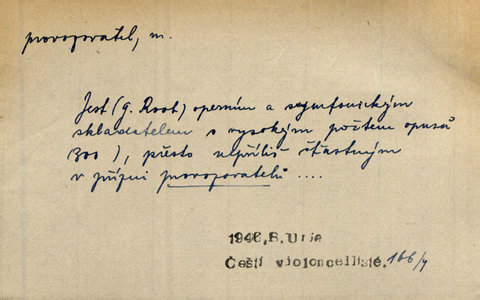 provozovatel, m.
Jest (G. Root) operním a symfonickým
skladatelem s vysokým počtem opusů
300), přesto nepříliš šťastným
v přízni provozovatelů ....
1946, B. Urie
Čeští violoncellisté. 166/4